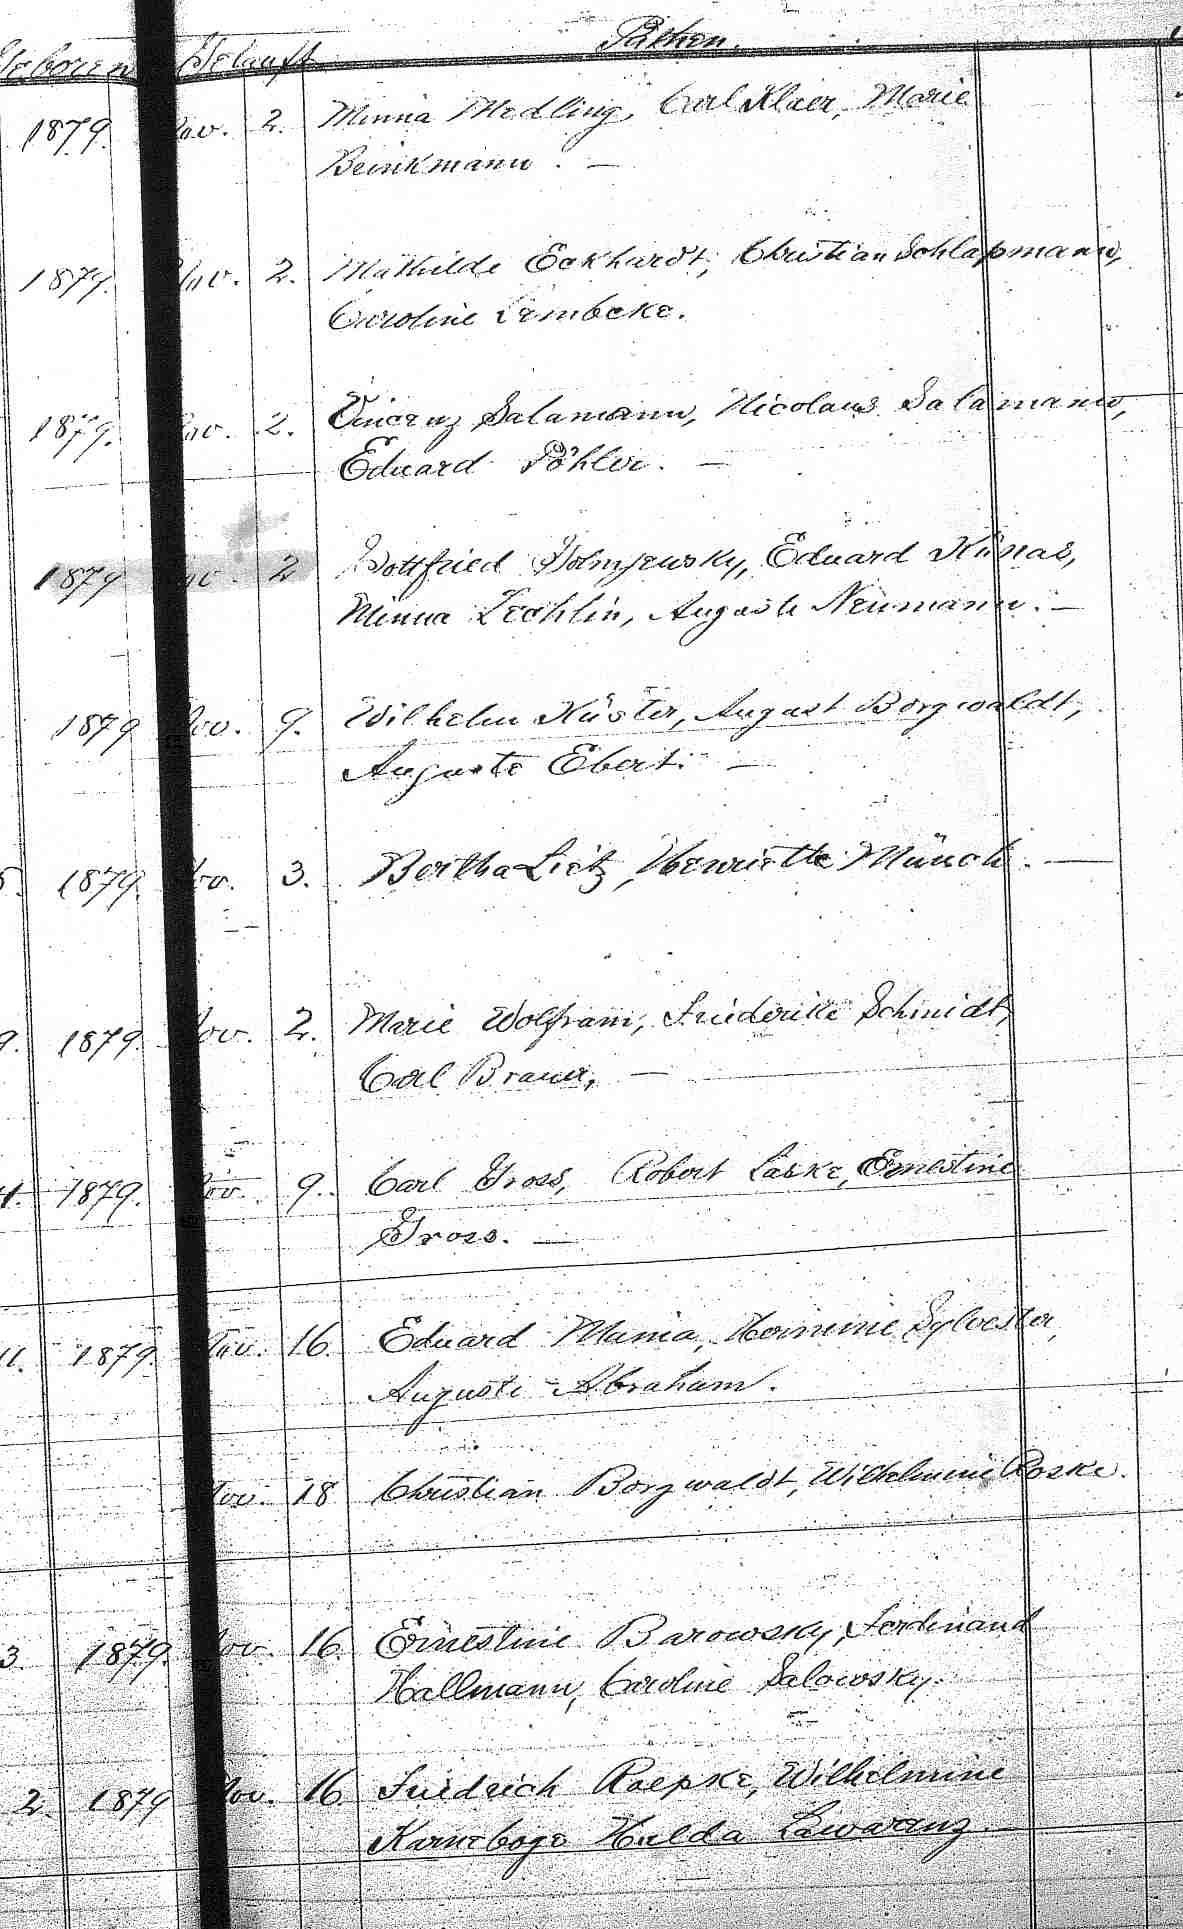 Geboren Getauft Pathen.
1879. Nov. 2. Minna Medling, Carl Klaer, Marie
Brinkmann. —
1879. Nov. 2. Mathilde Eckhardt, Christian Schlapmann,
Caroline Lembcke.
1879. Nov. 2. Vincenz Salamann, Nicolaus Salamann,
Eduard Pöhler. —
1879 Nov. 2 Gottfried Eduard Künas,
Minna Zechlin, Auguste Neumann. —
1879 Nov. 9. Wilhelm Küster, August Borgwaldt,
Auguste Ebert. —
5. 1879. Nov. 3. Bertha Lietz, Henriette Münch. —
9. 1879. Nov. 2. Marie Wolfram, Friederike Schmidt,
Carl Brauer, —
1. 1879. Nov. 9. Carl Gross, Robert Laske, Ernestine
Gross. —
11. 1879. Nov. 16. Eduard Mania, Hermine Sylvester,
Auguste Abraham.
Nov. 18 Christian Borgwaldt, Wilhelmine Roske.
3 1879. Nov. 16. Ernestine Barowsky, Ferdinand
Hallmann, Caroline Salowsky.
2. 1879 Nov. 16. Friedrich Roepke, Wilhelmine
Hulda Lawarenz —